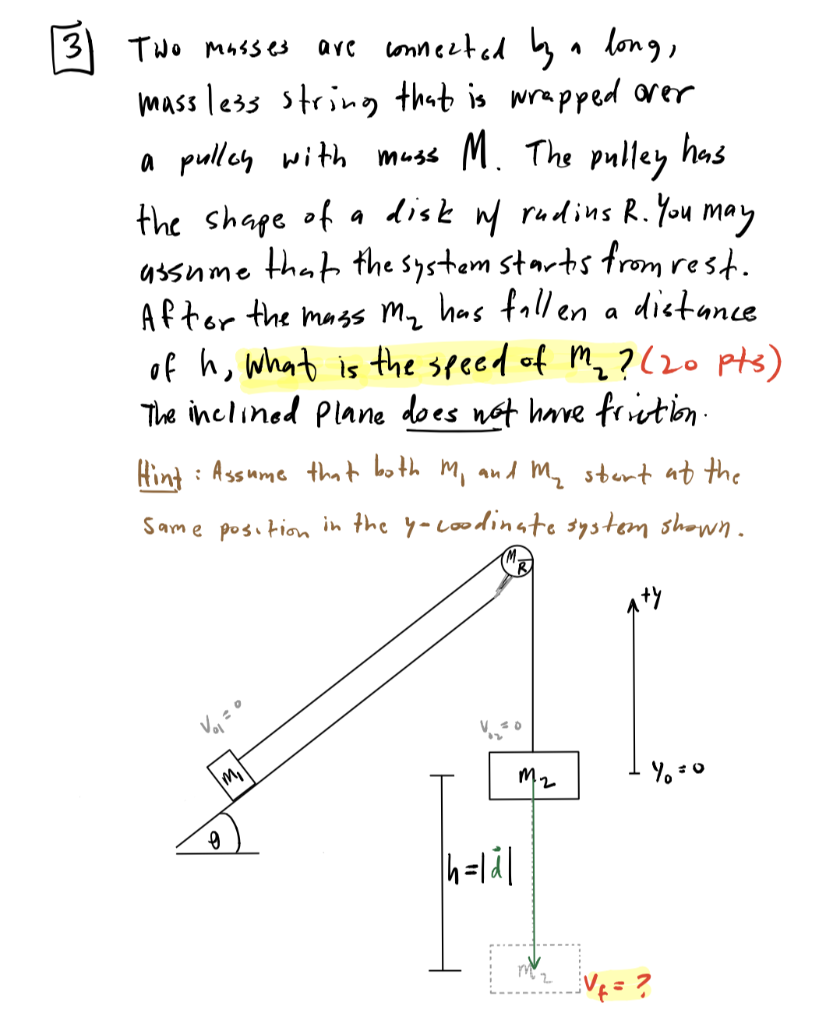 3) Two masses are connected by a long,
massless string that is wrapped over
a pulley with mass M. The pulley has
the shape of a disk w/ radius R. You may
assume that the system starts from rest.
After the mass m₂ has fallen a distance
of h, what is the speed of m₂? (20 pts)
The inclined plane does not have friction.
Hint: Assume that both m₁ and m₂ start at the
same position in the y-coodinate system shown.
M
R
+y
V₀₁=0
V₀₂=0
m₁
m₂
y₀=0
θ
h=|d|
m₂
V_f=?